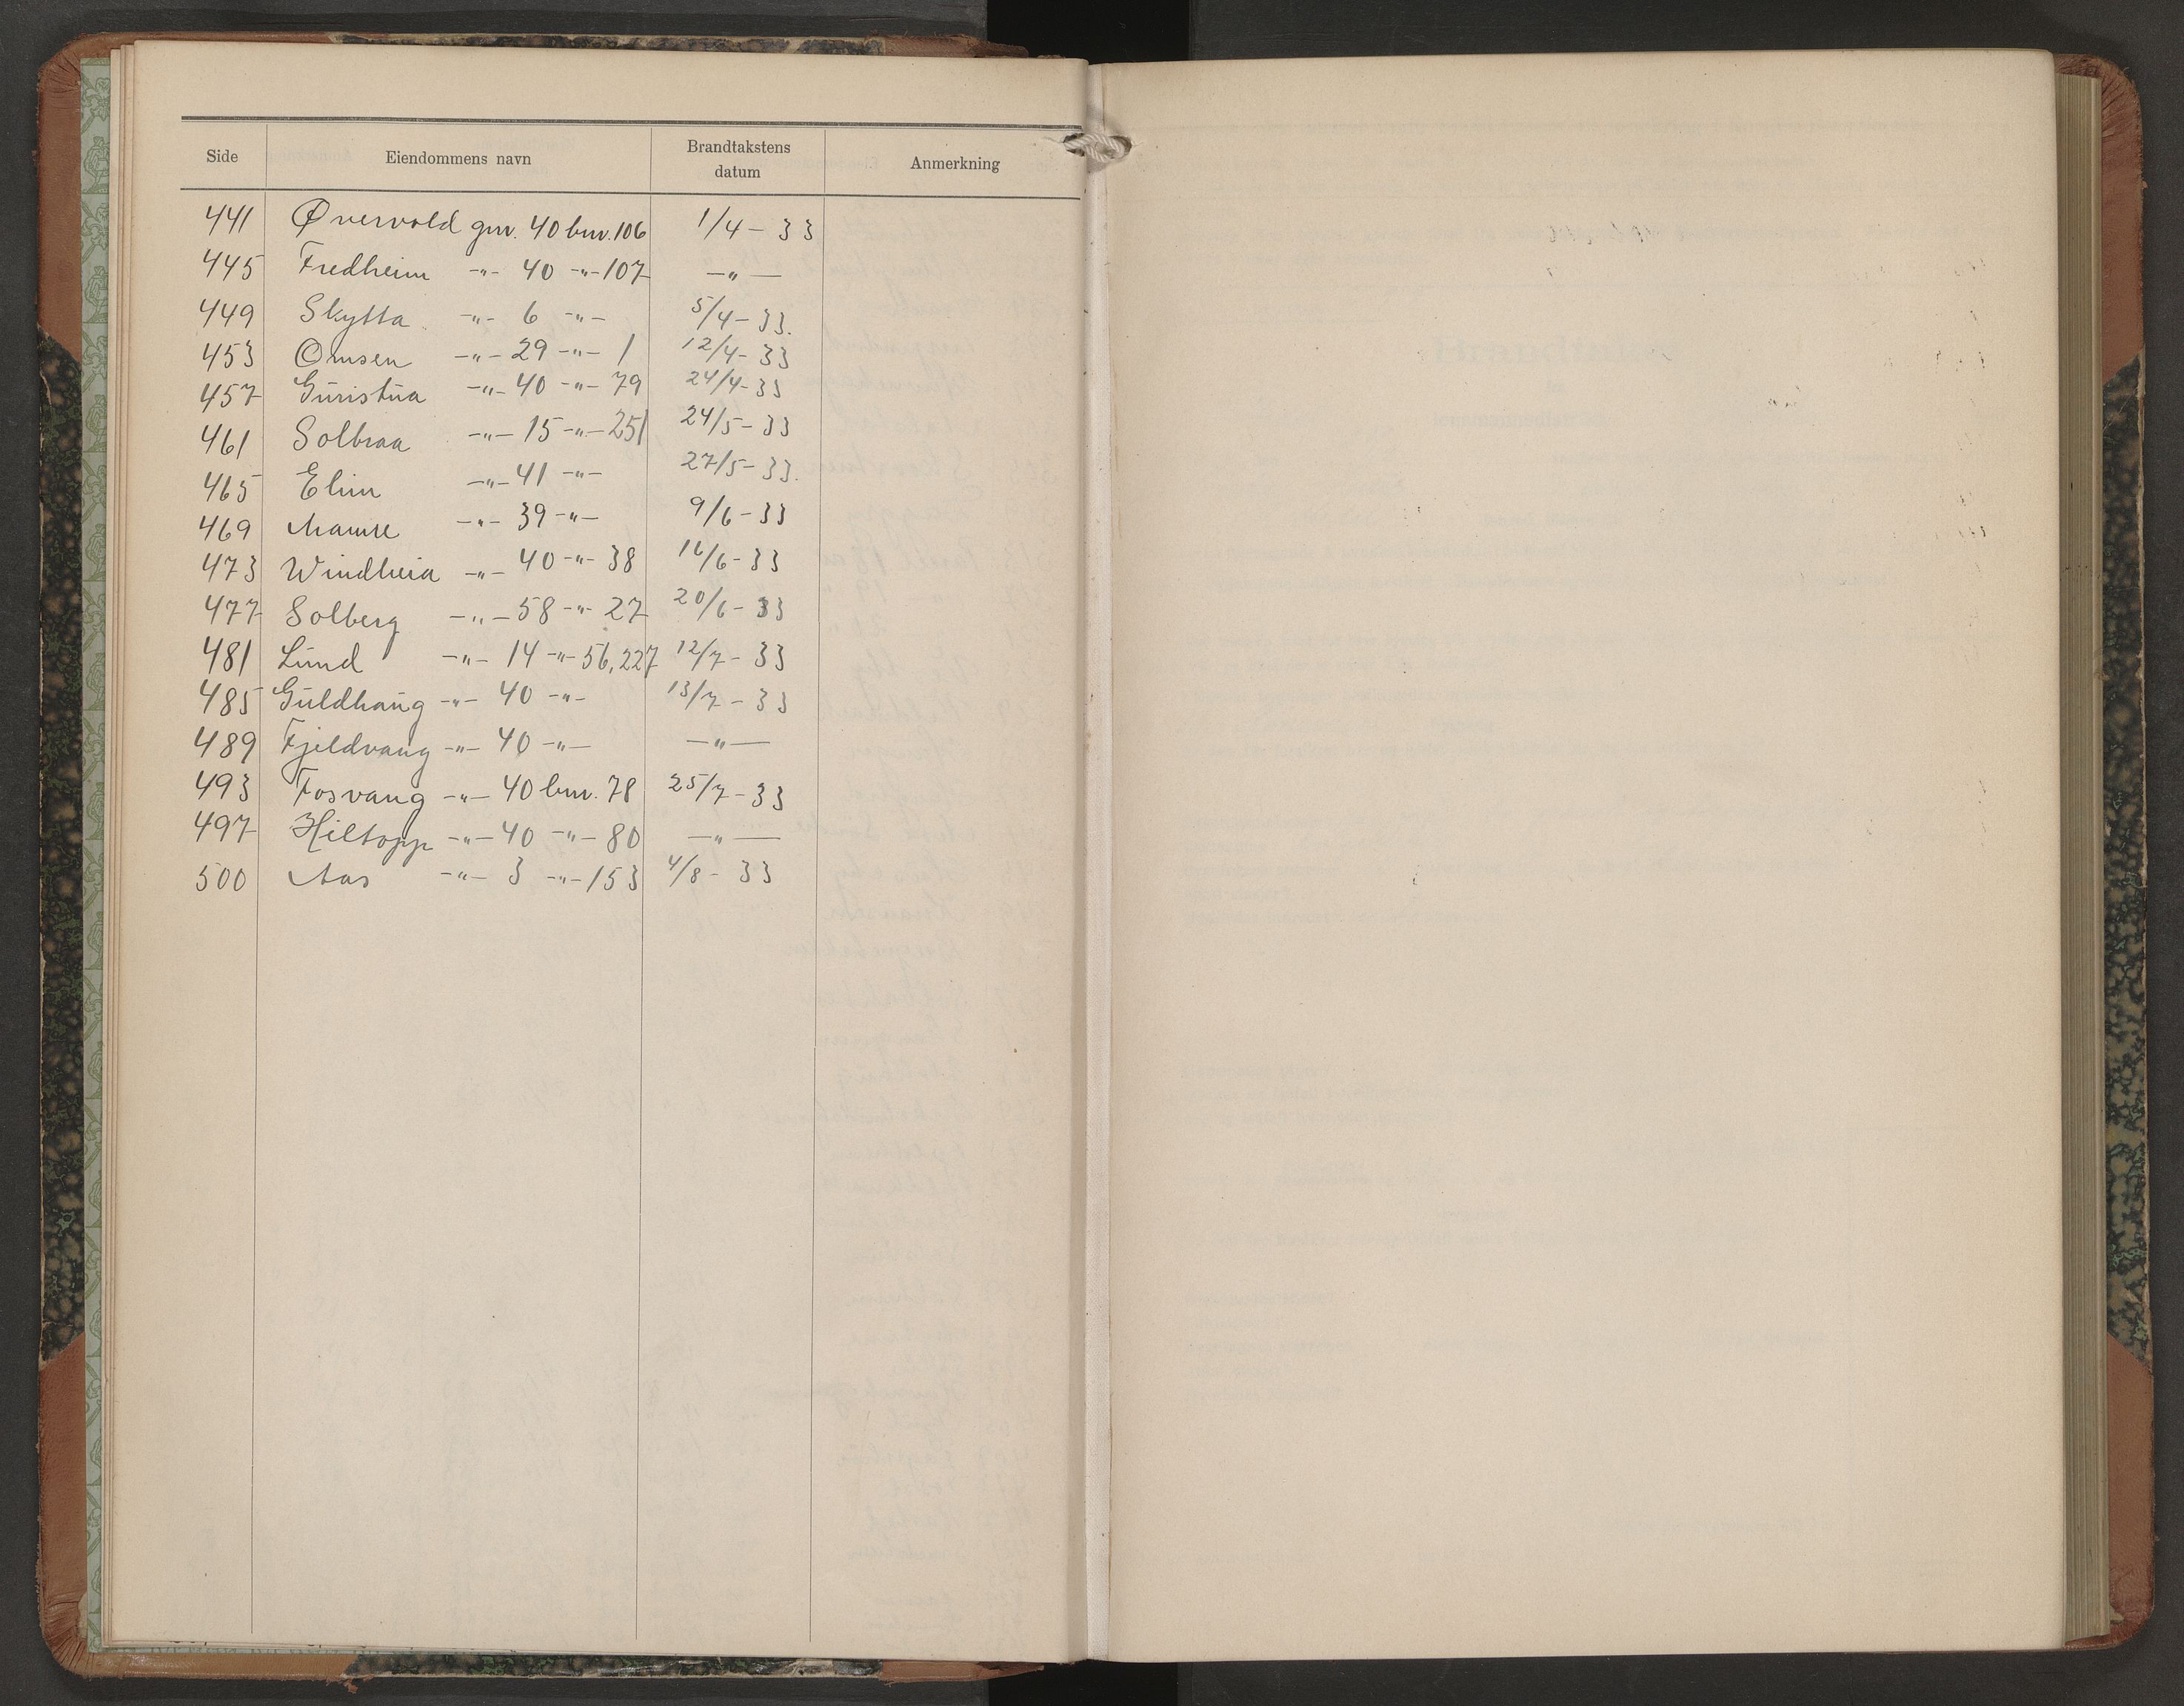 Side Eiendommens navn Brandtakstens datum Anmerkning
441 Øvervold gnr. 40 bnr. 106 1/4 - 33
445 Fredheim -"- 40 -"- 107 -"-
449 Skytta -"- 6 -"- 5/4 - 33.
453 Omsen -"- 29 -"- 1 12/4 - 33
457 Guristua -"- 40 -"- 79 24/4 - 33
461 Solbraa -"- 15 -"- 251 24/5 - 33
465 Elim -"- 41 -"- 27/5 - 33.
469 Mamre -"- 39 -"- 9/6 - 33
473 Windheia -"- 40 -"- 38 16/6 - 33
477 Solberg -"- 58 -"- 27 20/6 - 33
481 Lund -"- 14 -"- 56, 227 12/7 - 33
485 Guldhaug -"- 40 -"- 13/7 - 33
489 Fjeldvang -"- 40 -"- -"-
493 Fosvang -"- 40 bnr. 78 25/7 - 33
497 Hiltopp -"- 40 -"- 80 -"-
500 Aas -"- 3 -"- 153 4/8 - 33